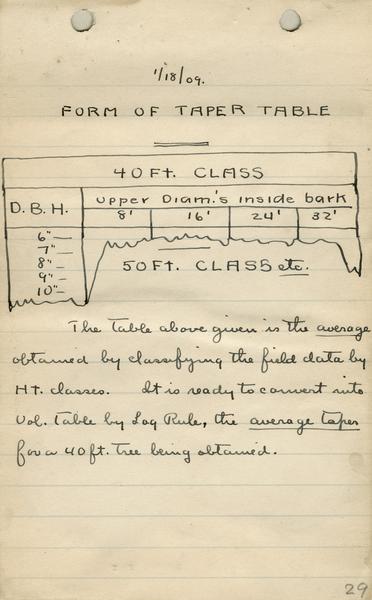 1/18/09.
FORM OF TAPER TABLE
40 FT. CLASS
D.B.H.
Upper Diam.'s inside bark
8' 16' 24' 32'
6"
7"
8"
9"
10"
50 FT. CLASS etc.
The Table above given is the average
obtained by classifying the field data by
Ht. classes. It is ready to convert into
Vol. Table by Log Rule, the average taper
for a 40 ft. tree being obtained.
29